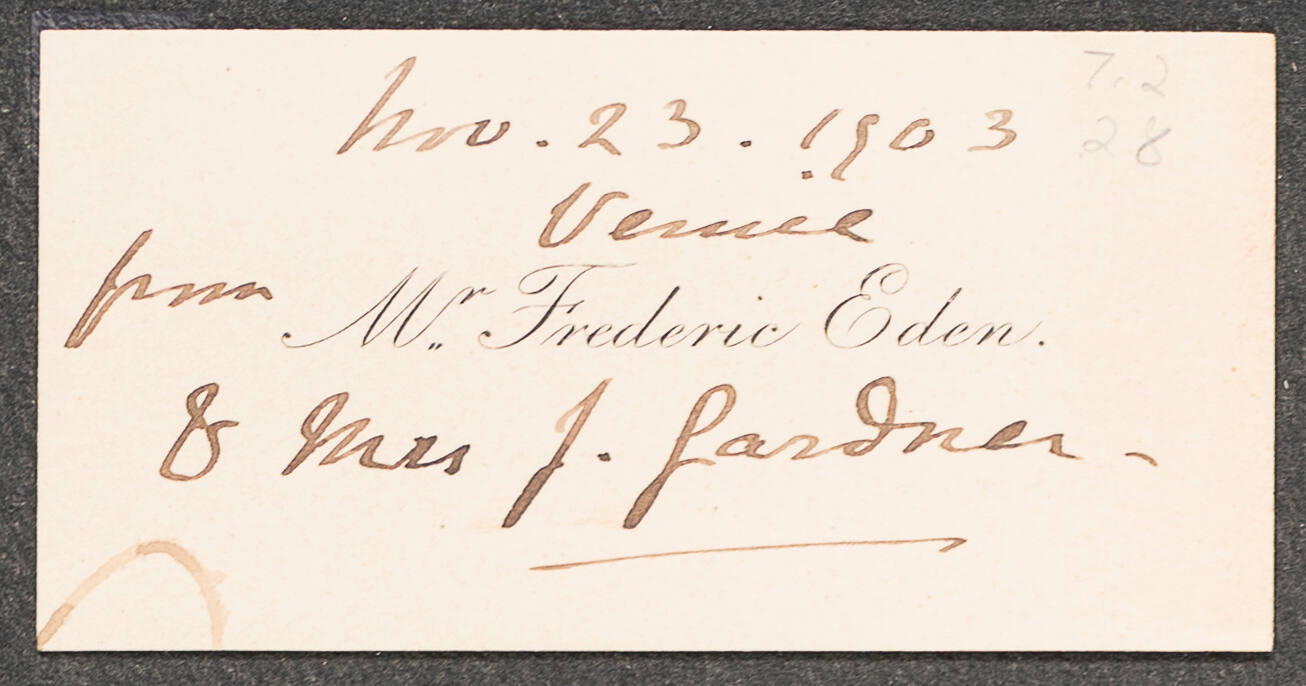 Nov. 23. 1903
7.2
28
Venice
from Mr. Frederic Eden.
to Mrs J. Gardner -